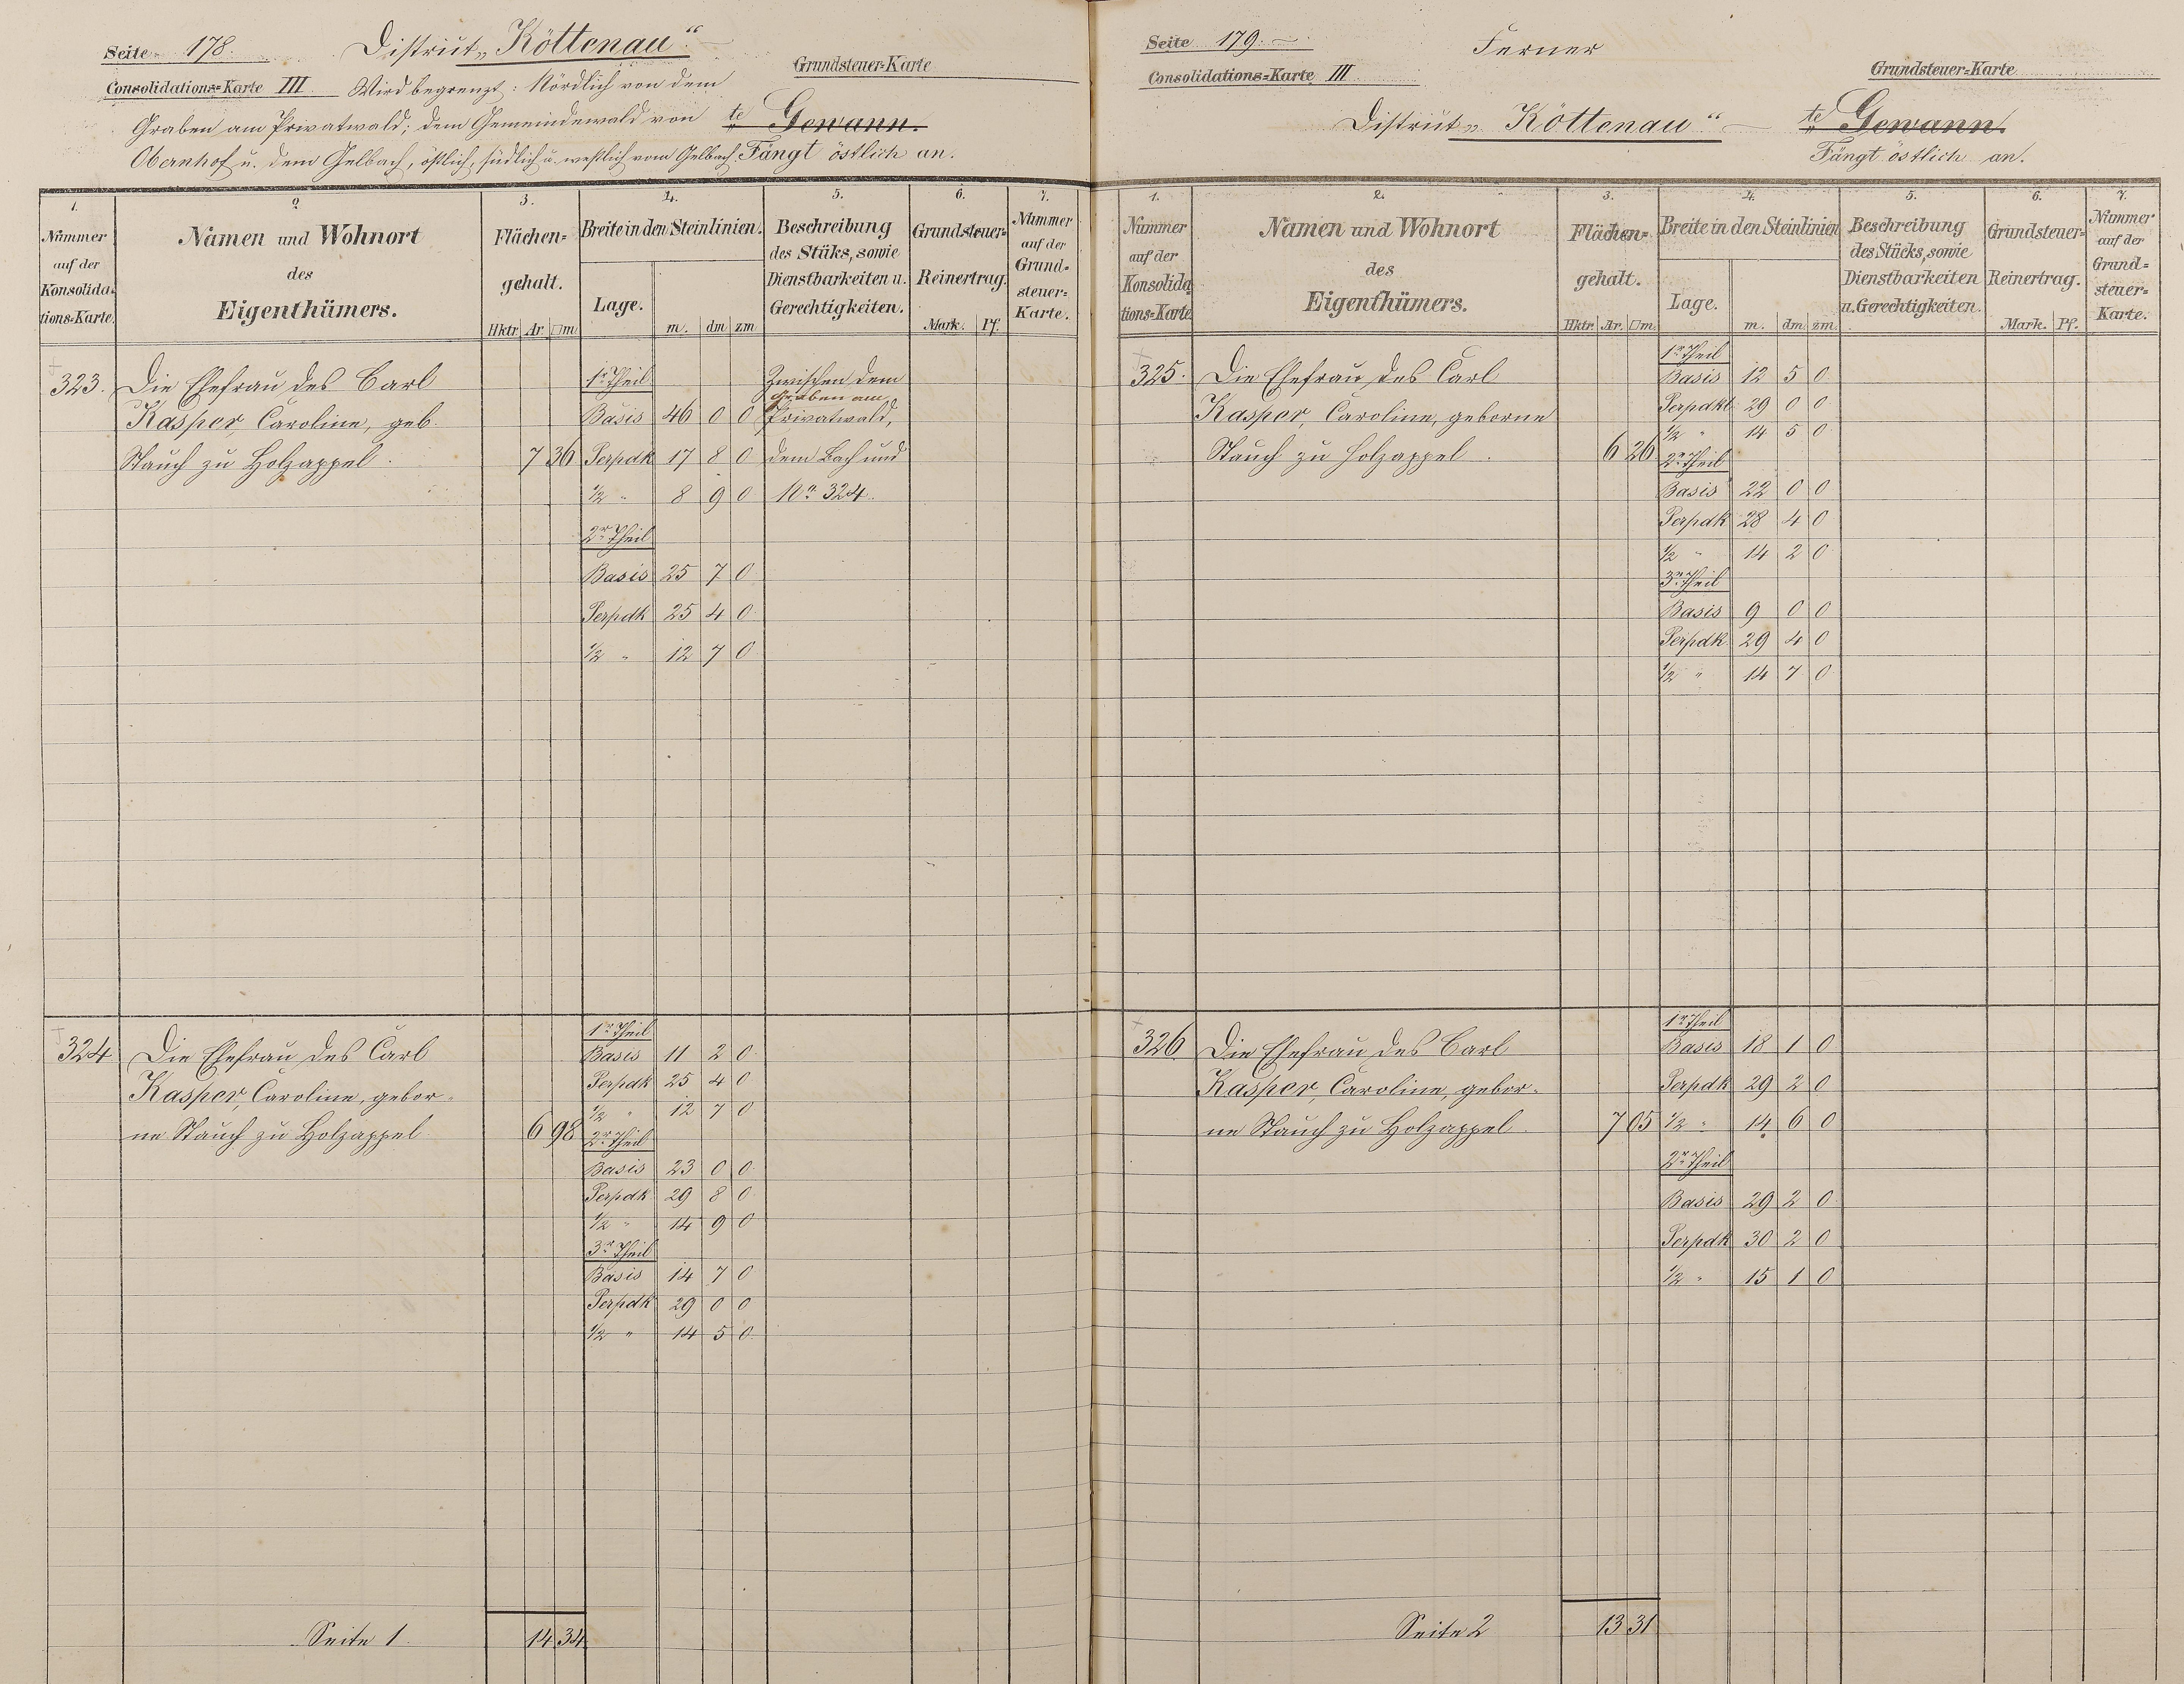 Seite 178.
Distrikt „Köttenau“
Grundsteuer-Karte
Consolidations-Karte III
Wird begrenzt: Nördlich von dem
Graben am Privatwald; dem Gemeindewald von
te Gewann.
Obernhof u. dem Gelbach, östlich, südlich u. westlich vom Gelbach. Fängt östlich an.
1. 2 3. 4. 5. 6. 7.
Nummer auf der Konsolidations-Karte.
Namen und Wohnort
des
Eigenthümers.
Flächen-
gehalt.
Hktr. Ar. □m
Breite in den Steinlinien.
Lage.
m. dm zm
Beschreibung
des Stüks, sowie
Dienstbarkeiten u.
Gerechtigkeiten.
Grundsteuer-
Reinertrag.
Mark. Pf.
Nummer
auf der
Grund-
steuer-
Karte.
323. Die Ehefrau des Carl
Kasper, Caroline, geb.
Stauch zu Holzappel.
7 36
1r Theil
Basis 46 0 0
Perpdk 17 8 0
1/2 " 8 9 0
2r Theil
Basis 25 7 0
Perpdk 25 4 0
1/2 " 12 7 0
Zwischen dem
Graben am
Privatwald,
dem Bach und
No 324.
324 Die Ehefrau des Carl
Kasper, Caroline, gebor-
ne Stauch zu Holzappel
6 98
1r Theil
Basis 11 2 0
Perpdk 25 4 0
1/2 " 12 7 0
2r Theil
Basis 23 0 0
Perpdk 29 8 0
1/2 " 14 9 0
3r Theil
Basis 14 7 0
Perpdk 29 0 0
1/2 " 14 5 0
Seite 1. 14 34
Seite 179.
Ferner
Grundsteuer-Karte
Consolidations-Karte III
Distrikt „Köttenau“ te Gewann.
Fängt östlich an.
1. 2. 3. 4. 5. 6. 7.
Nummer
auf der
Konsolida
tions-Karte
Namen und Wohnort
des
Eigenthümers.
Flächen-
gehalt.
Hktr. Ar. □m.
Breite in den Steinlinien
Lage.
m. dm. zm.
Beschreibung
des Stücks, sowie
Dienstbarkeiten
u. Gerechtigkeiten.
Grundsteuer-
Reinertrag.
Mark. Pf.
Nummer
auf der
Grund-
steuer-
Karte.
325. Die Ehefrau des Carl
Kasper, Caroline, geborne
Stauch zu Holzappel.
6 26
1r Theil
Basis 12 5 0
Perpdkl 29 0 0
1/2 " 14 5 0
2r Theil
Basis 22 0 0
Perpdk 28 4 0
1/2 " 14 2 0
3r Theil
Basis 9 0 0
Perpdk 29 4 0
1/2 " 14 7 0
326. Die Ehefrau des Carl
Kasper, Caroline, gebor-
ne Stauch zu Holzappel
7 05
1r Theil
Basis 18 1 0
Perpdk 29 2 0
1/2 " 14 6 0
2r Theil
Basis 29 2 0
Perpdk 30 2 0
1/2 " 15 1 0
Seite 2 13 31